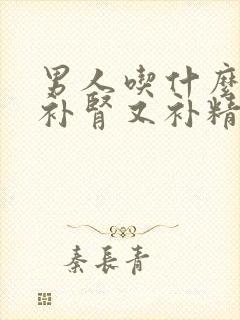 男人喫什麼
补腎又补精
秦長青